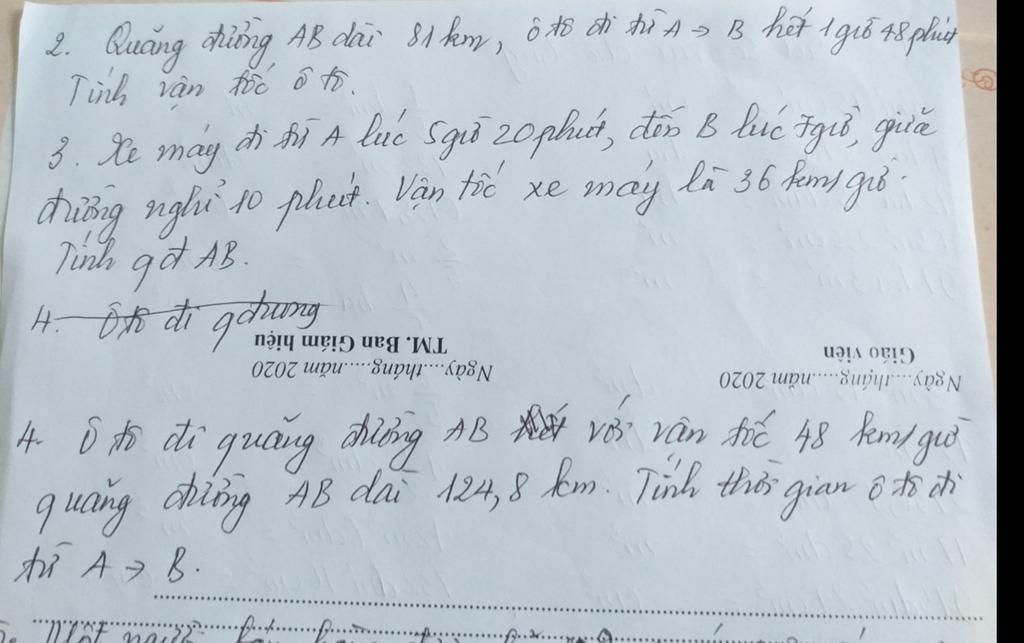 2. Quãng đường AB dài 81 km, ô tô đi từ A → B hết 1 giờ 48 phút
Tính vận tốc ô tô.
3. Xe máy đi từ A lúc 5 giờ 20 phút, đến B lúc 7 giờ, giữa
đường nghỉ 10 phút. Vận tốc xe máy là 36 km/giờ.
Tính qđ AB.
4. Ô tô đi qđường
TM. Ban Giám hiệu
Ngày....tháng.....năm 2020
Giáo viên
Ngày....tháng.....năm 2020
4. Ô tô đi quãng đường AB với vận tốc 48 km/giờ
quãng đường AB dài 124,8 km. Tính thời gian ô tô đi
từ A → B.
Một người